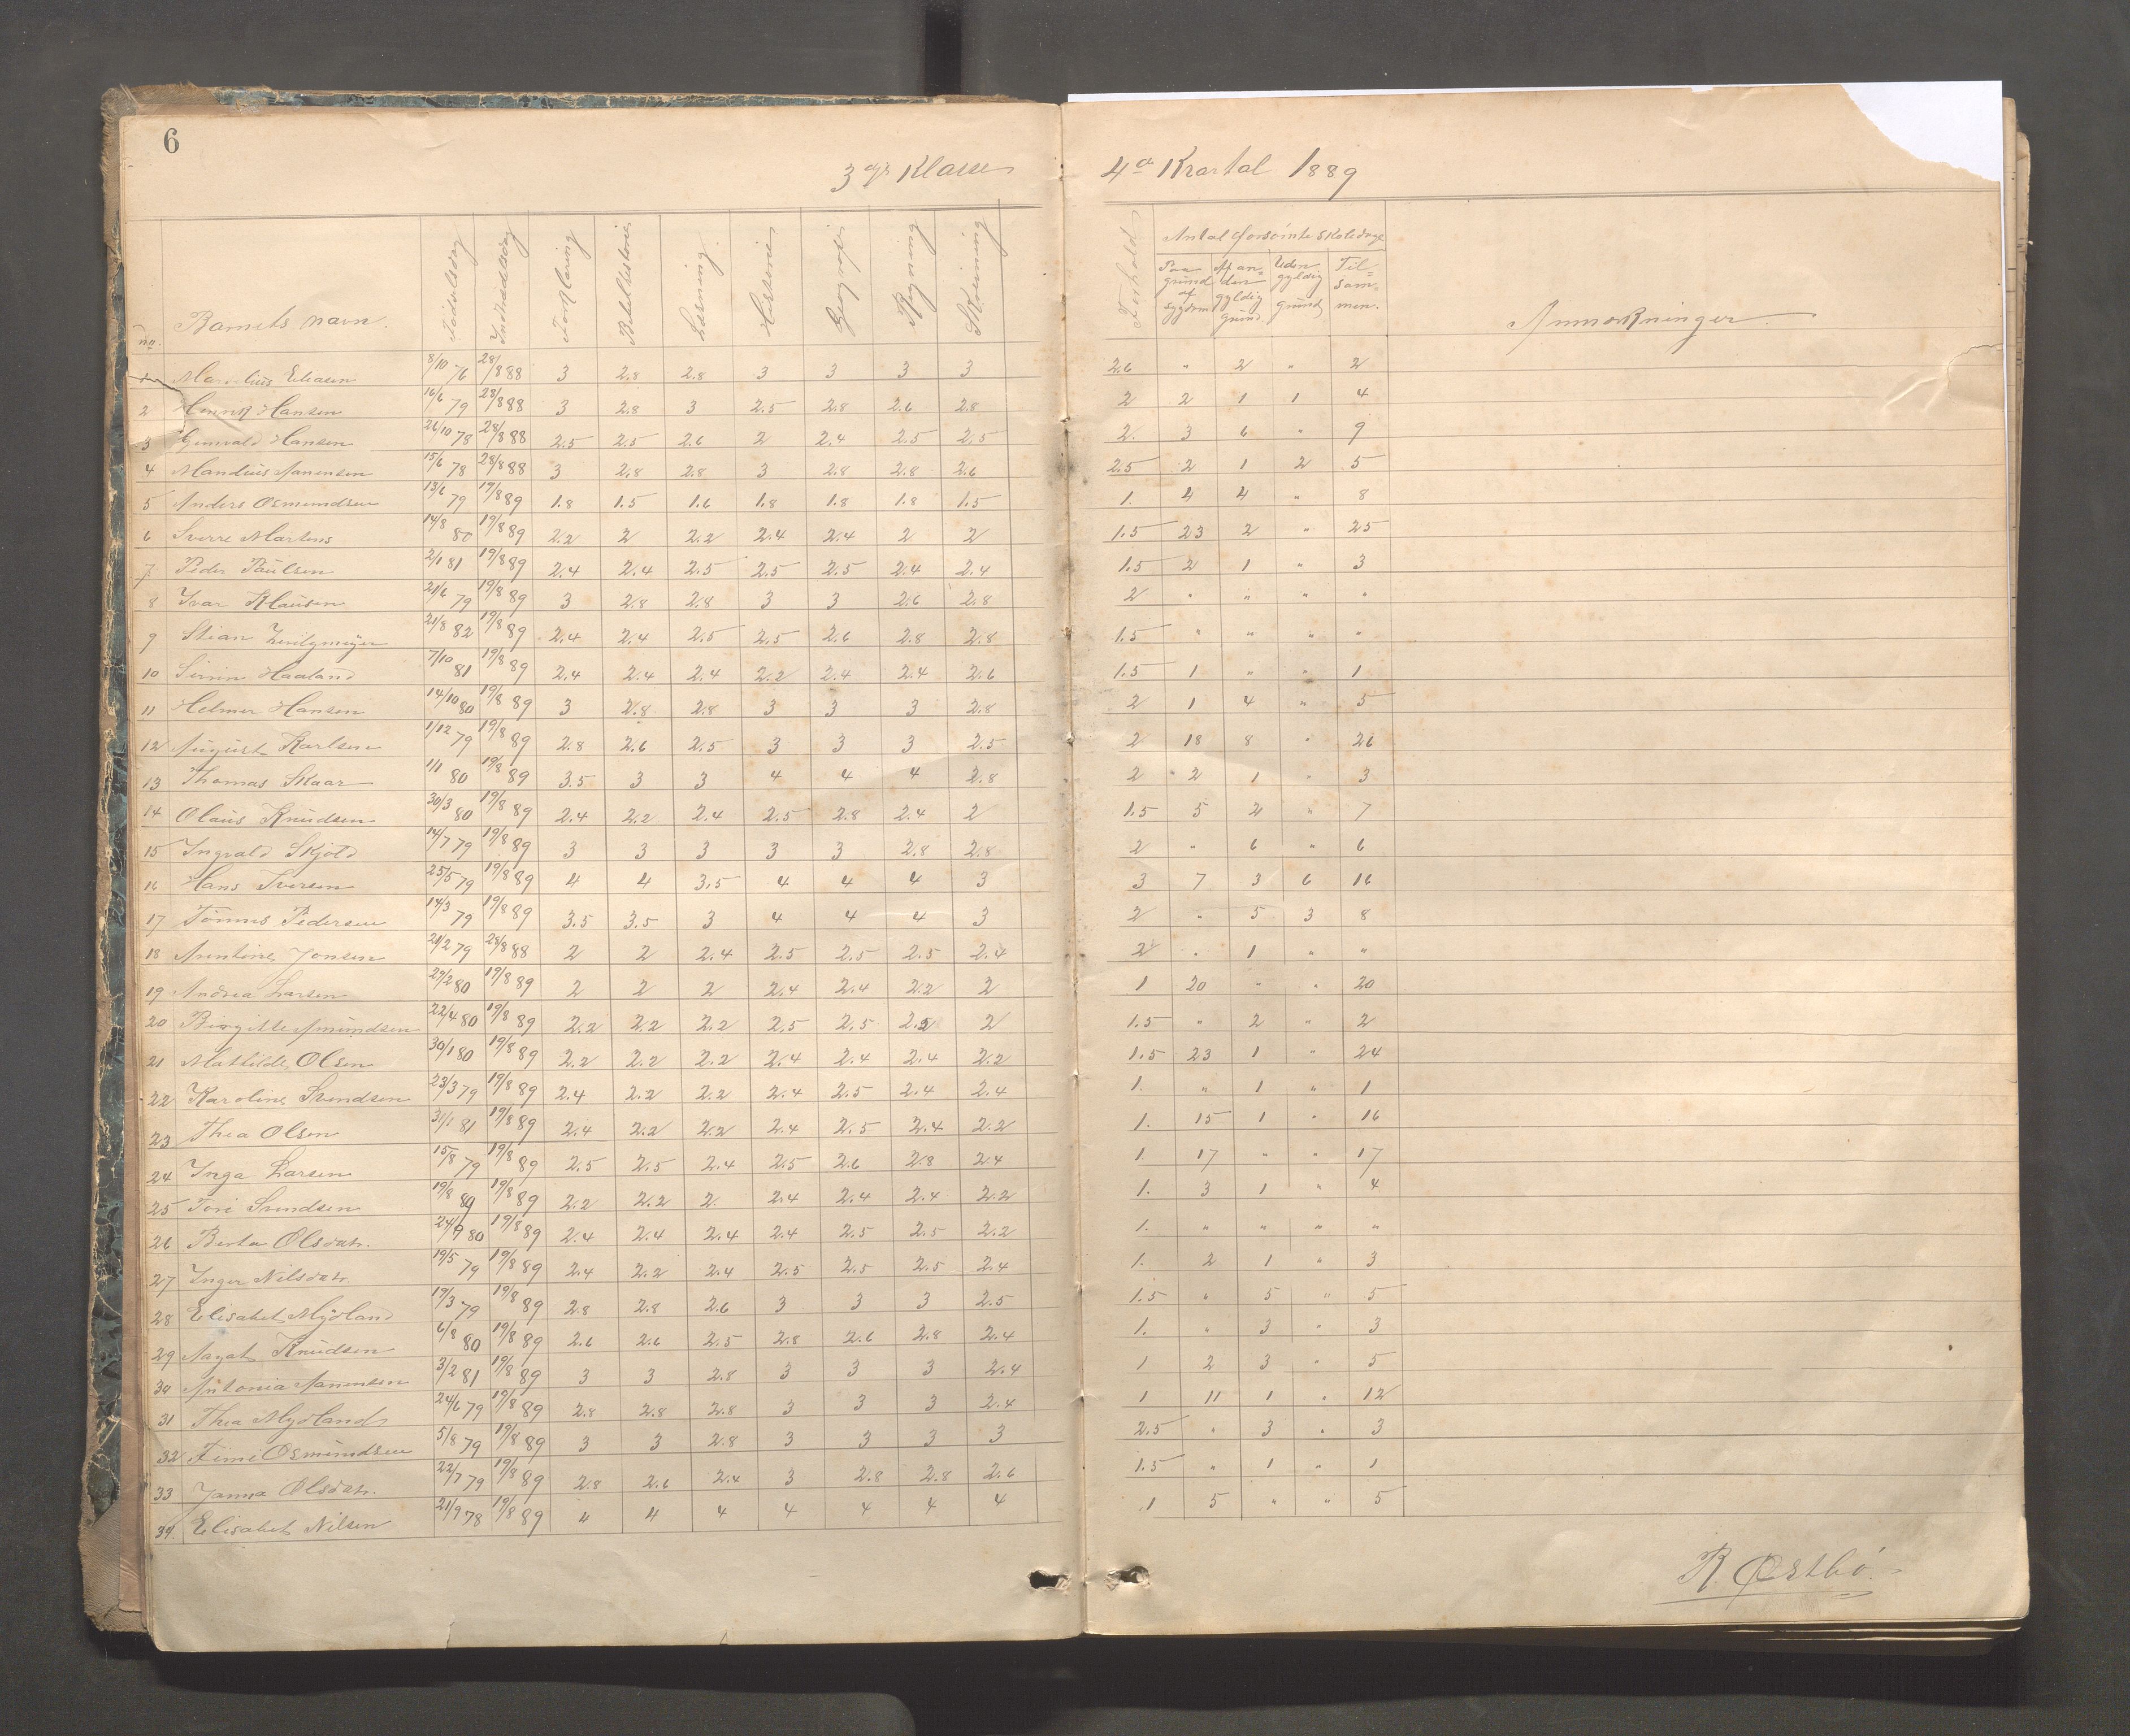 6
3die Klasse
4de Kvartal 1889
no. Barnets navn. Fødselsdag Indtrædelsdag Forklaring Bibelhistorie Læsning Historie Geografi Regning Skrivning
Forhold Antal forsømte Skoledage Anmærkninger
Paa grund af sygdom Af an= den gyldig grund Uden gyldig grund Til= sam= men.
1 Marselius Eliasen 8/10 76 28/8 88 3 2.8 2.8 3 3 3 3 2.6 " 2 " 2
2 Henrik Hansen 16/6 79 28/8 88 3 2.8 3 2.5 2.8 2.6 2.8 2 2 1 1 4
3 Gunvald Hansen 26/10 78 28/8 88 2.5 2.5 2.6 2 2.4 2.5 2.5 2. 3 6 " 9
4 Mandius Aanensen 15/6 78 28/8 88 3 2.8 2.8 3 2.8 2.8 2.6 2.5 2 1 2 5
5 Anders Osmundsen 13/6 79 19/8 89 1.8 1.5 1.6 1.8 1.8 1.8 1.5 1. 4 4 " 8
6 Sverre Martens 14/8 80 19/8 89 2.2 2 2.2 2.4 2.4 2 2 1.5 23 2 " 25
7 Peder Paulsen 2/1 81 19/8 89 2.4 2.4 2.5 2.5 2.5 2.4 2.4 1.5 2 1 " 3
8 Ivar Klausen 21/6 79 19/8 89 3 2.8 2.8 3 3 2.6 2.8 2 " " " "
9 Stian 21/8 82 19/8 89 2.4 2.4 2.5 2.5 2.6 2.8 2.8 1.5 " " " "
10 Sivin Haaland 7/10 81 19/8 89 2.4 2.4 2.4 2.2 2.4 2.4 2.6 1.5 1 " " 1
11 Helmer Hansen 14/10 80 19/8 89 3 2.8 2.8 3 3 3 2.8 2 1 4 " 5
12 August Karlsen 1/12 79 19/8 89 2.8 2.6 2.5 3 3 3 2.5 2 18 8 " 26
13 Thomas Skaar 1/1 80 19/8 89 3.5 3 3 4 4 4 2.8 2 2 1 " 3
14 Olaus Knudsen 30/3 80 19/8 89 2.4 2.2 2.4 2.5 2.8 2.4 2 1.5 5 2 " 7
15 Ingvald Skjold 14/7 79 19/8 89 3 3 3 3 3 2.8 2.8 2 " 6 " 6
16 Hans Iversen 25/5 79 19/8 89 4 4 3.5 4 4 4 3 3 7 3 6 16
17 Tønnes Pedersen 14/3 79 19/8 89 3.5 3.5 3 4 4 4 3 2 " 5 3 8
18 Arentine Jonsen 21/2 79 28/8 88 2 2 2.4 2.5 2.5 2.5 2.4 2 " 1 " "
19 Andrea Larsen 29/2 80 19/8 89 2 2 2 2.4 2.4 2.2 2 1 20 " " 20
20 Birgitte Amundsen 22/4 80 19/8 89 2.2 2.2 2.2 2.5 2.5 2.2 2 1.5 " 2 " 2
21 Mathilde Olsen 30/1 80 19/8 89 2.2 2.2 2.2 2.4 2.4 2.4 2.2 1.5 23 1 " 24
22 Karoline Svendsen 23/3 79 19/8 89 2.4 2.2 2.2 2.4 2.5 2.4 2.4 1. " 1 " 1
23 Thea Olsen 31/1 81 19/8 89 2.4 2.2 2.2 2.4 2.5 2.4 2.2 1. 15 1 " 16
24 Inga Larsen 15/8 79 19/8 89 2.5 2.5 2.4 2.5 2.6 2.8 2.4 1 17 " " 17
25 Tori Svendsen 19/8 19/8 89 2.2 2.2 2. 2.4 2.4 2.4 2.2 1. 3 1 " 4
26 Berta Olsdatr. 24/9 80 19/8 89 2.4 2.4 2.4 2.4 2.5 2.5 2.2 1. " " " "
27 Inger Nilsdatr 19/5 79 19/8 89 2.4 2.2 2.4 2.5 2.5 2.5 2.4 1. 2 1 " 3
28 Elisabet Mydland 19/3 79 19/8 89 2.8 2.8 2.6 3 3 3 2.5 1.5 " 5 " 5
29 Aagat Knudsen 6/8 80 19/8 89 2.6 2.6 2.5 2.8 2.6 2.8 2.4 1. " 3 " 3
30 Antonia Aanensen 3/2 81 19/8 89 3 3 2.8 3 3 3 2.4 1 2 3 " 5
31 Thea Mydland 24/6 79 19/8 89 2.8 2.8 2.8 3 3 3 2.4 1 11 1 " 12
32 Fimi Osmundsen 5/8 79 19/8 89 3 3 2.8 3 3 3 3 2.5 " 3 " 3
33 Janna Olsdatr. 22/7 79 19/8 89 2.8 2.6 2.4 3 2.8 2.8 2.6 1.5 " 1 " 1
34. Elisabet Nilsen 21/9 78 19/8 89 4 4 4 4 4 4 4 1 5 " " 5
R. Østbø.